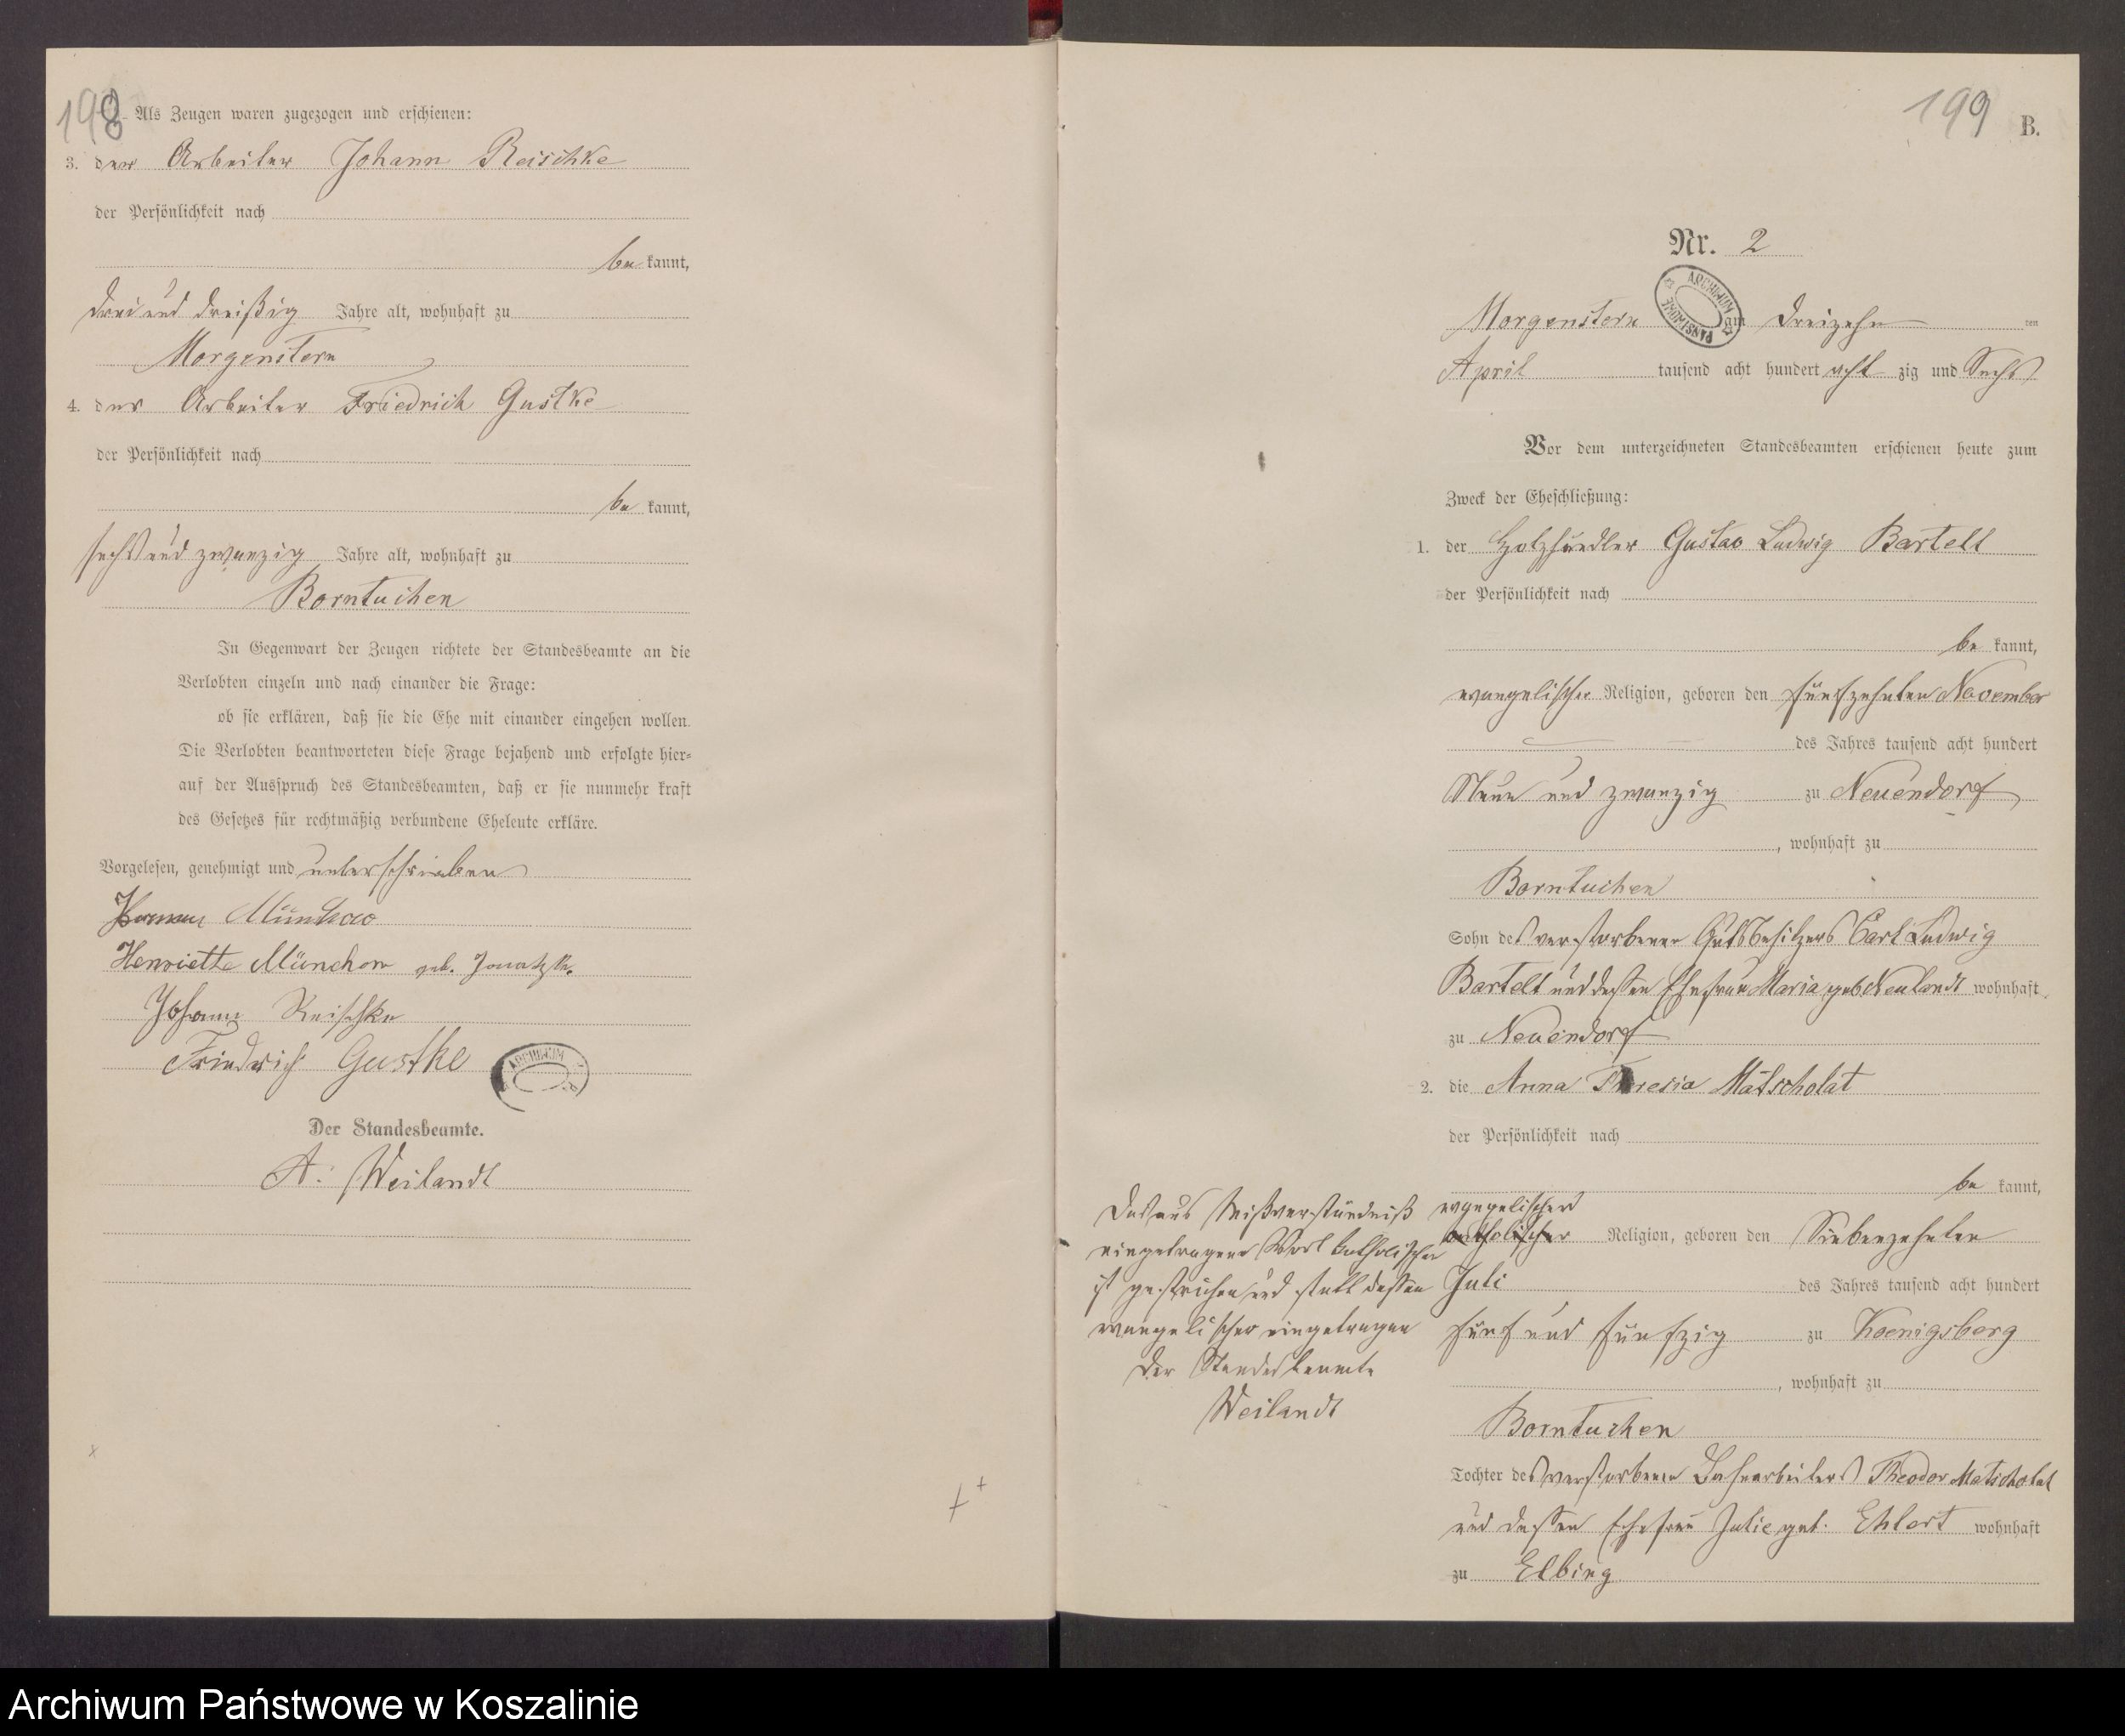 198
Als Zeugen waren zugezogen und erschienen:
3. der Arbeiter Johann Reischke
der Persönlichkeit nach
be kannt,
drei und dreißig Jahre alt, wohnhaft zu
Morgenstern
4. der Arbeiter Friedrich Gustke
der Persönlichkeit nach
be kannt,
sechs und zwanzig Jahre alt, wohnhaft zu
Borntuchen
In Gegenwart der Zeugen richtete der Standesbeamte an die
Verlobten einzeln und nach einander die Frage:
ob sie erklären, daß sie die Ehe mit einander eingehen wollen.
Die Verlobten beantworteten diese Frage bejahend und erfolgte hier-
auf der Ausspruch des Standesbeamten, daß er sie nunmehr kraft
des Gesetzes für rechtmäßig verbundene Eheleute erkläre.
Vorgelesen, genehmigt und unterschrieben
Münchow
Henriette Münchow geb.
Johann Reischke
Friedrich Gustke
ARCHIWUM
Der Standesbeamte.
A. Weilandt
199
B.
Nr. 2
ARCHIWUM PAŃSTWOWE
Morgenstern am dreizehn ten
April tausend acht hundert acht zig und sechs
Vor dem unterzeichneten Standesbeamten erschienen heute zum
Zweck der Eheschließung:
1. der Holzhändler Gustav Ludwig Bartelt
der Persönlichkeit nach
be kannt,
evangelischer Religion, geboren den fünfzehnten November
des Jahres tausend acht hundert
Neun und zwanzig zu Neuendorf
, wohnhaft zu
Borntuchen
Sohn des verstorbenen Gutsbesitzers Carl Ludwig
Bartelt und dessen Ehefrau Maria geb. Neulandt wohnhaft
zu Neuendorf
2. die Anna Theresia Matscholat
der Persönlichkeit nach
be kannt,
evangelischer
katholischer Religion, geboren den Siebenzehnten
Juli des Jahres tausend acht hundert
fünf und fünfzig zu Koenigsberg
, wohnhaft zu
Borntuchen
Tochter des verstorbenen Bahnarbeiters Theodor Matscholat
und dessen Ehefrau Julie geb. Ehlert wohnhaft
zu Elbing
Das aus Mißverständniß
eingetragene Wort katholischer
ist gestrichen und statt dessen
evangelischer eingetragen
Der Standesbeamte
Weilandt
Archiwum Państwowe w Koszalinie